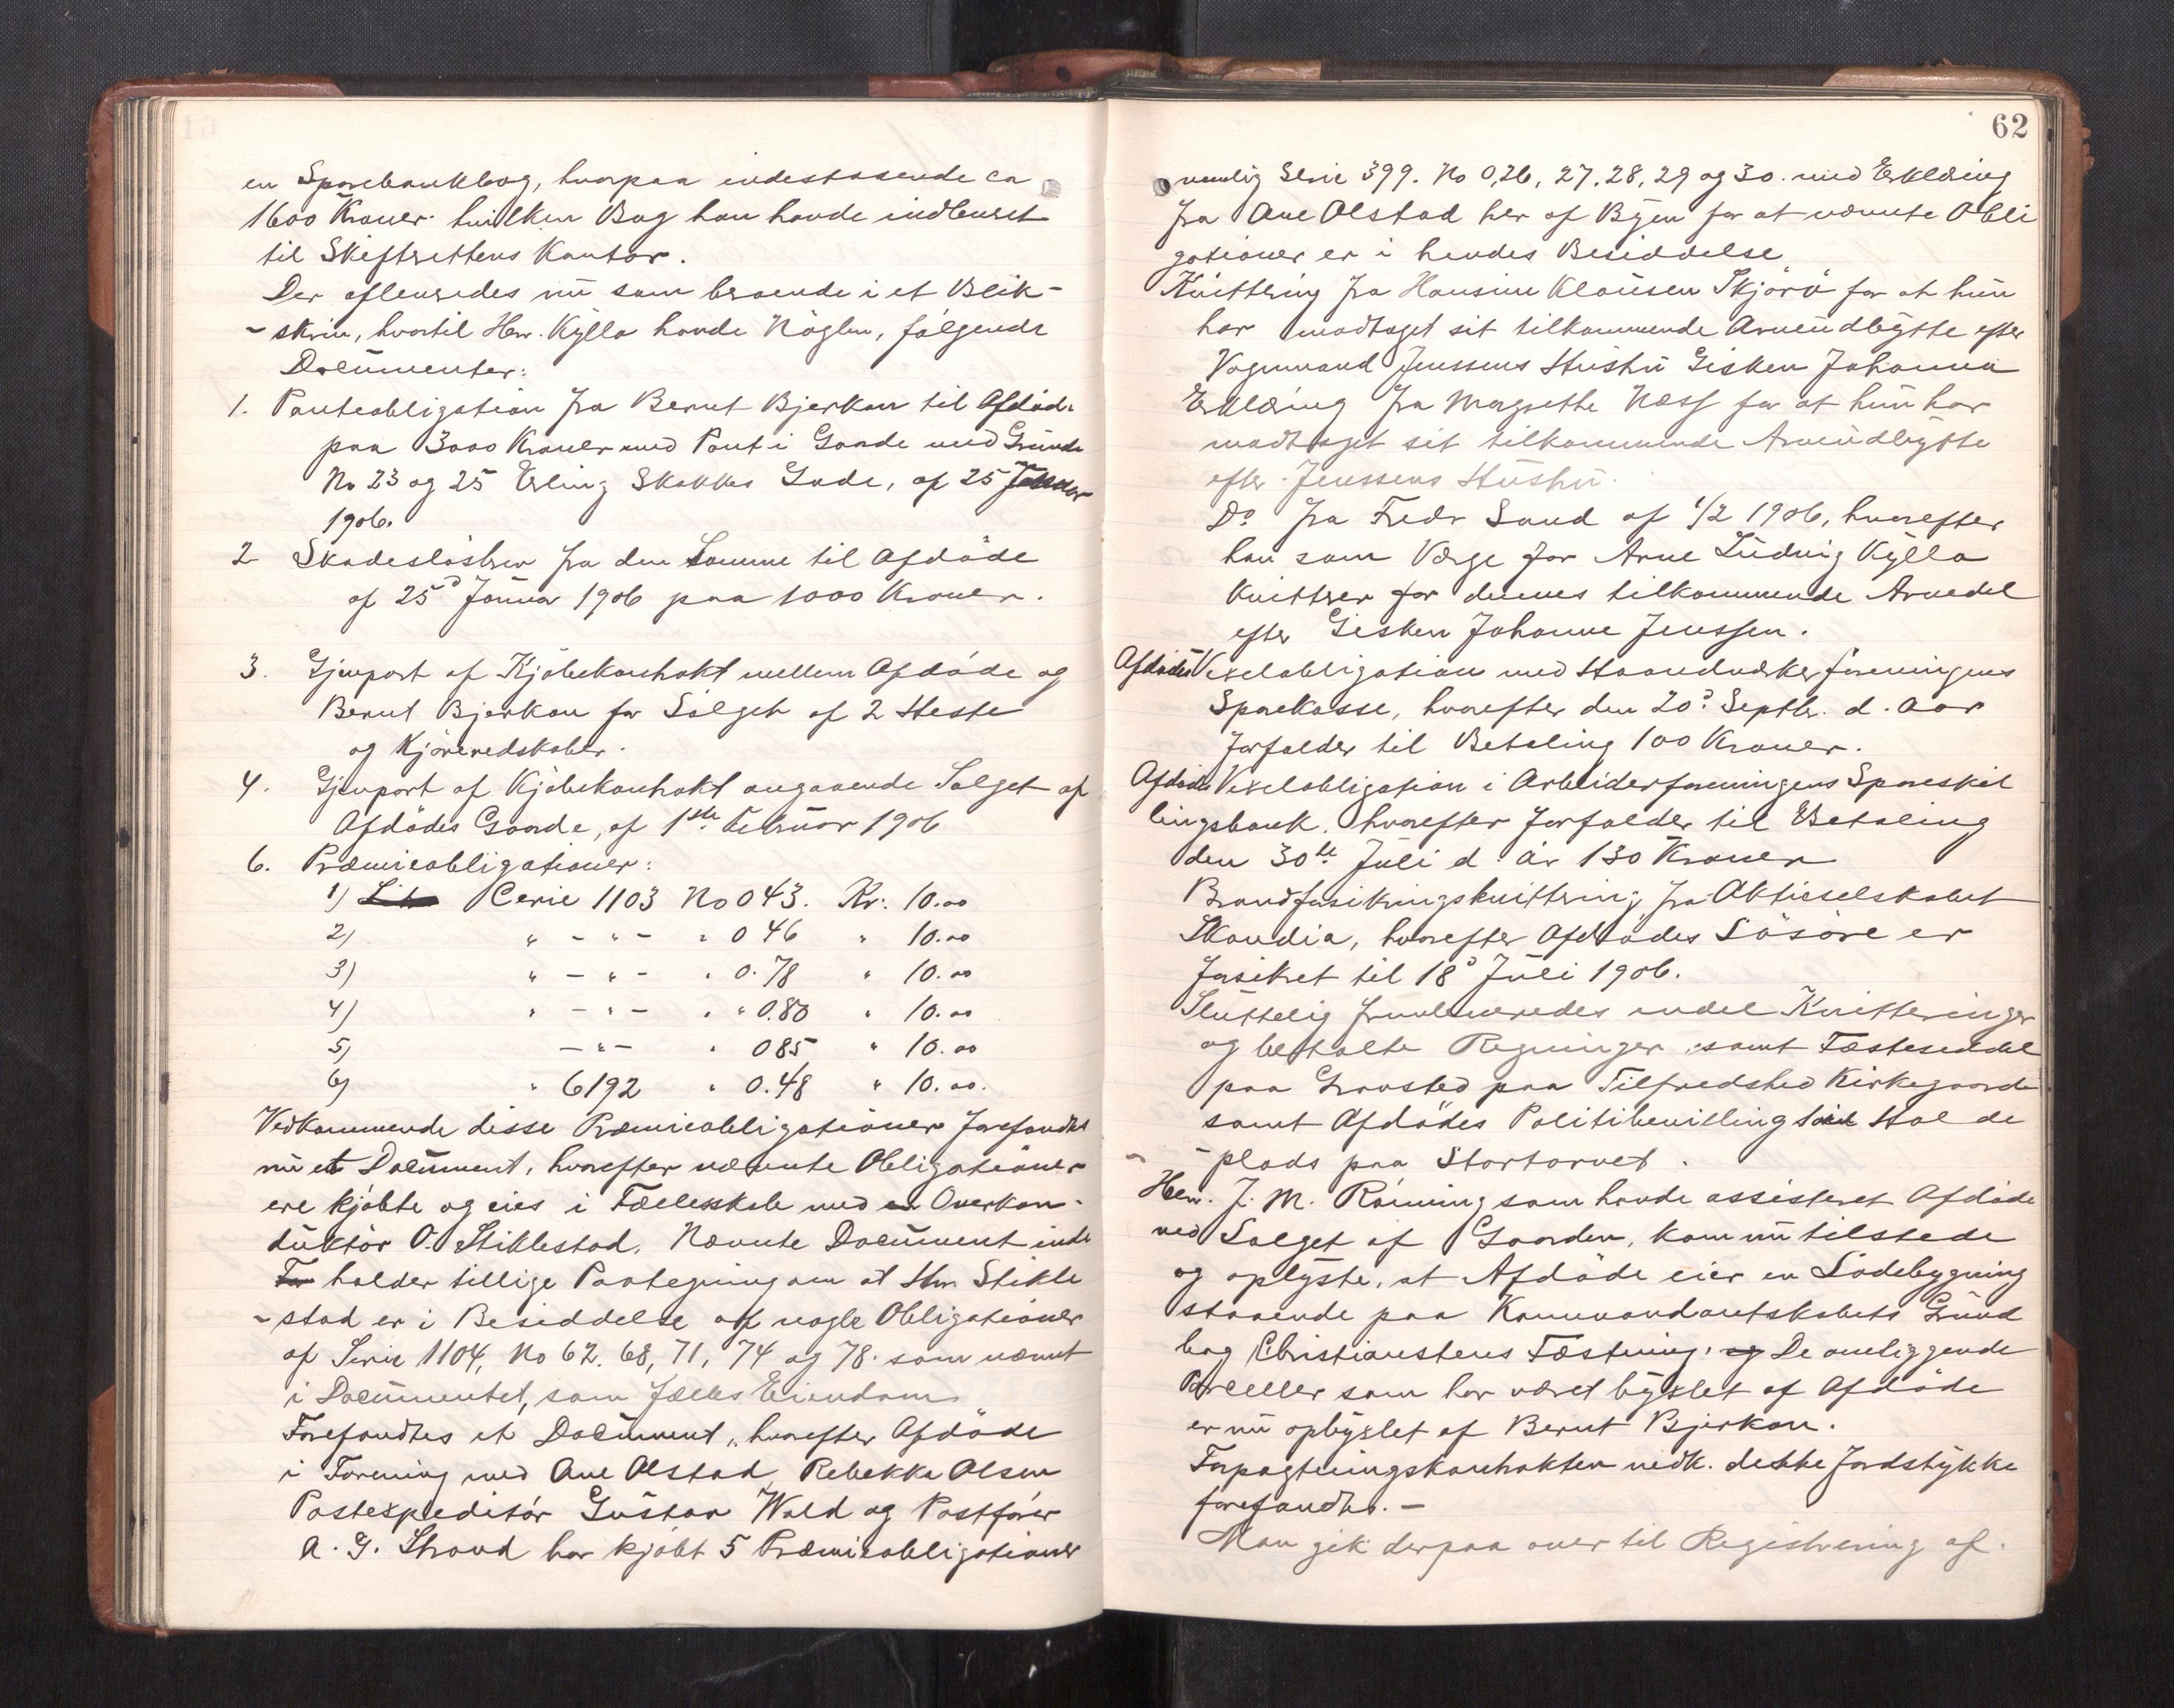 en Sparebankbog, hvorpaa indestaaende ca
1600 Kroner. hvilken Bog han havde indleveret
til Skifterettens Kontor.
Der afleveredes nu som beroende i et Blik-
- skrin, hvortil Herr. Kylla havde Nöglen, følgende
Documenter:
1. Panteobligation fra Bernt Bjerkan til Afdöde
paa 3000 Kroner med Pant i Gaarde med Grunde
No 23 og 25 Erling Skakkes Gade, af 25 Januar
1906.
2 Skadeslösbrev fra den Samme til Afdöde
af 25d Januar 1906 paa 1000 Kroner.
3. Gjenpart af Kjöbekontrakt mellem Afdöde og
Bernt Bjerkan for Salget af 2 Heste
og Kjöreredskaber.
4. Gjenpart af Kjöbekontrakt angaaende Salget af
Afdödes Gaarde, af 1ste Februar 1906
6. Præmieobligationer:
1) Serie 1103 No 043. Kr: 10.00
2) " - " - " 0 46 " 10.00
3) " - " - " 0.78 " 10.00
4) " - " - " " 0.80 " 10.00
5) - " - " 085 " 10.00
6) " 6192 " 0.48 " 10.00.
Vedkommende disse Præmieobligationer forefandtes
nu et Document, hvorefter nævnte Obligationer
ere kjöbte og eies i Fællesskab med Overkon-
duktör O. Stiklestad. Nævnte Document inde
holder tillige Paategning om at Herr Stikle
- stad er i Besiddelse af nogle Obligationer
af Serie 1104, No 62. 68, 71, 74 og 78. som nævnt
i Documentet, som fælles Eiendom
Forefandtes et Document, hvorefter Afdöde
i Forening med Ane Olstad, Rebekka Olsen
Postexpeditör Gustav Wald og Postförer
A. G. Strand har kjöbt 5 Præmieobligationer
62
nemlig Serie 399. No 0,26, 27. 28, 29 og 30. med Erklæring
fra Ane Olstad her af Byen for at nævnte Obli
gationer er i hendes Besiddelse
Kvittering fra Hansine Klausen Skjörö for at hun
har modtaget sit tilkommende Arveudbytte efter
Vognmand Jenssens Hustru Gisken Johanna
Erklæring fra Margrethe Næss for at hun har
modtaget sit tilkommende Arveudbytte
efter Jenssens Hustru.
Do fra Fredr Sand af 1/2 1906, hvorefter
han som Værge for Arne Ludvig Kylla
kvitterer for dennes tilkommende Arvedel
efter Gisken Johanne Jenssen.
Afdödes Vexelobligation med Haandværkerforeningens
Sparekasse, hvorefter den 20d Septbr. d. Aar
forfalder til Betaling 100 Kroner.
Afdödes Vexelobligation i Arbeiderforeningens Spareskil
lingsbank, hvorefter forfalder til Betaling
den 30te Juli d. år 130 Kroner
Brandforsikringskvittering fra Aktieselskabet
Skandia, hvorefter Afdödes Lösöre er
forsikret til 18d Juli 1906.
Sluttelig fremleveredes endel Kvitteringer
og betalte Regninger, samt Fæsteseddel
paa Gravsted paa Tilfredshed Kirkegaard
samt Afdödes Politibevilling til Hol de
- plads paa Stortorvet.
Herr. J. M. Röining som havde assisteret Afdöde
ved Salget af Gaarden, kom nu tilstede
og oplyste, at Afdöde eier en Ladebygning
staaende paa Kommandantskabets Grund
bag Christianstens Fæstning. De omliggende
Parceller som har været bygslet af Afdöde
er nu opbygslet af Bernt Bjerkan.
Forpagtningskontrakten vedk. dette Jordstykke
forefandtes. -
Man gik derpaa over til Registrering af.